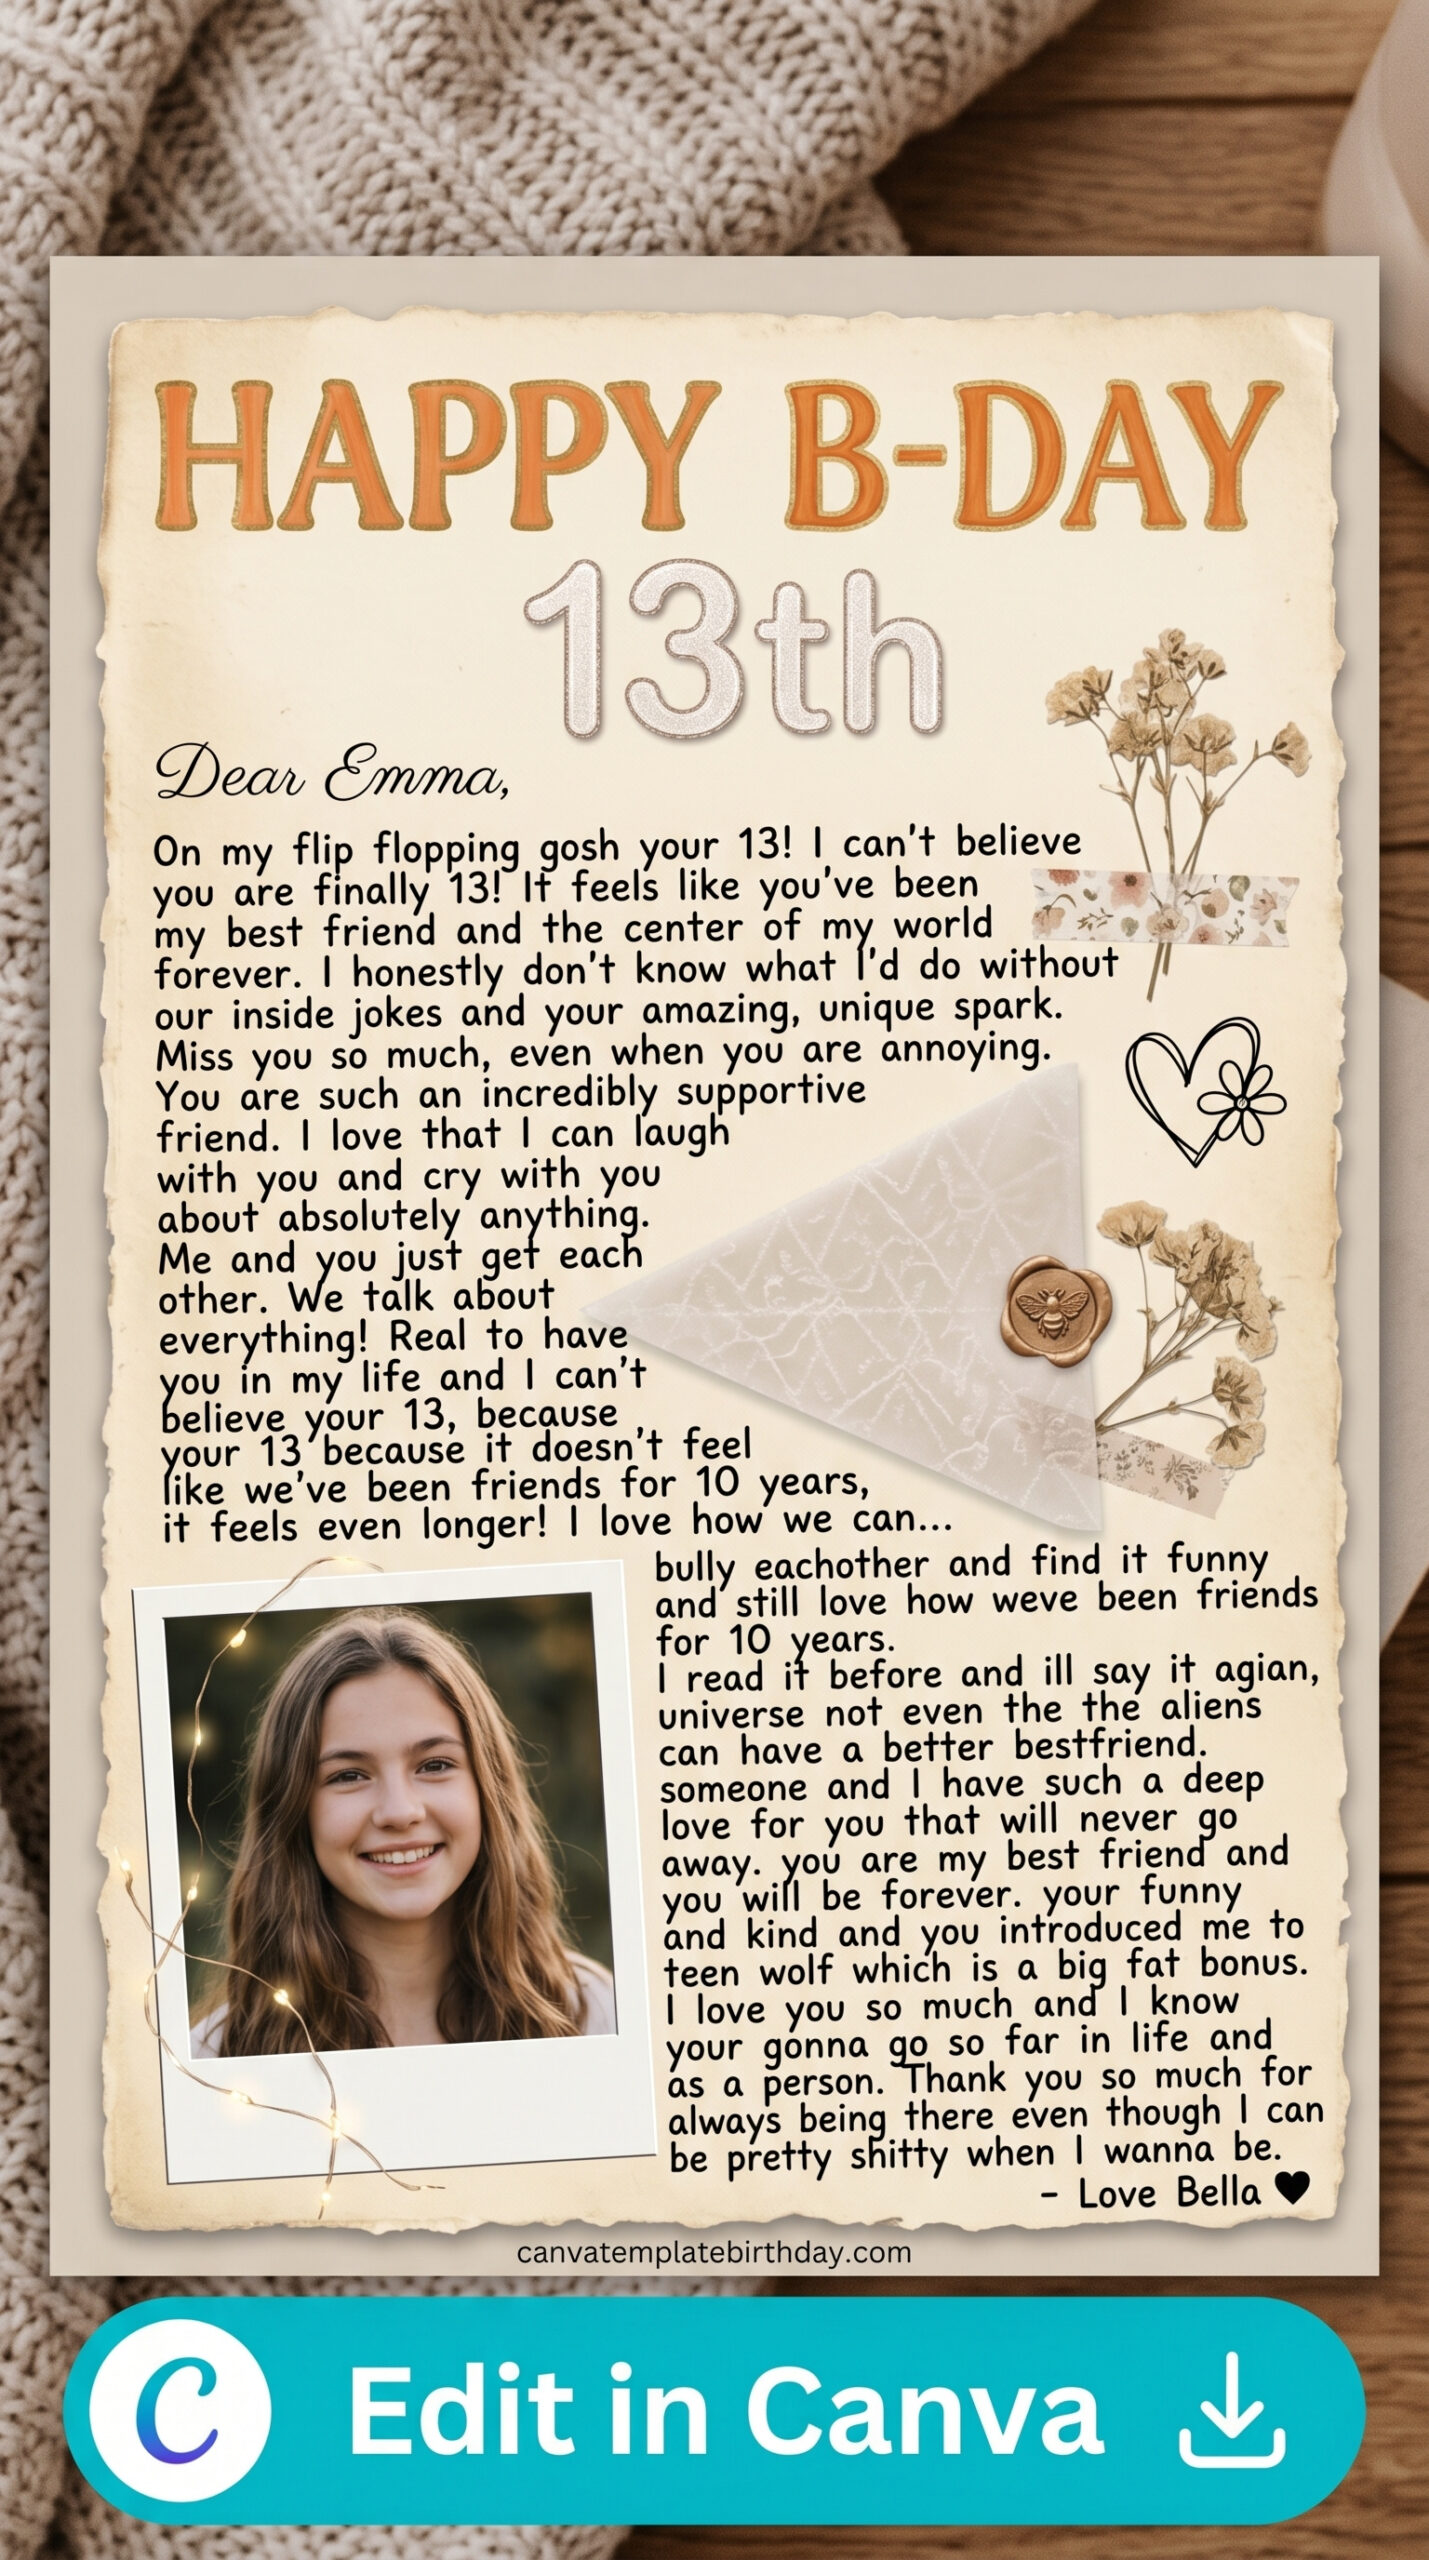 HAPPY B-DAY
13th
Dear Emma,
On my flip flopping gosh your 13! I can't believe
you are finally 13! It feels like you've been
my best friend and the center of my world
forever. I honestly don't know what I'd do without
our inside jokes and your amazing, unique spark.
Miss you so much, even when you are annoying.
You are such an incredibly supportive
friend. I love that I can laugh
with you and cry with you
about absolutely anything.
Me and you just get each
other. We talk about
everything! Real to have
you in my life and I can't
believe your 13, because
your 13 because it doesn't feel
like we've been friends for 10 years,
it feels even longer! I love how we can...
bully eachother and find it funny
and still love how weve been friends
for 10 years.
I read it before and ill say it agian,
universe not even the the aliens
can have a better bestfriend.
someone and I have such a deep
love for you that will never go
away. you are my best friend and
you will be forever. your funny
and kind and you introduced me to
teen wolf which is a big fat bonus.
I love you so much and I know
your gonna go so far in life and
as a person. Thank you so much for
always being there even though I can
be pretty shitty when I wanna be.
- Love Bella ♥
canvatemplatebirthday.com
C Edit in Canva